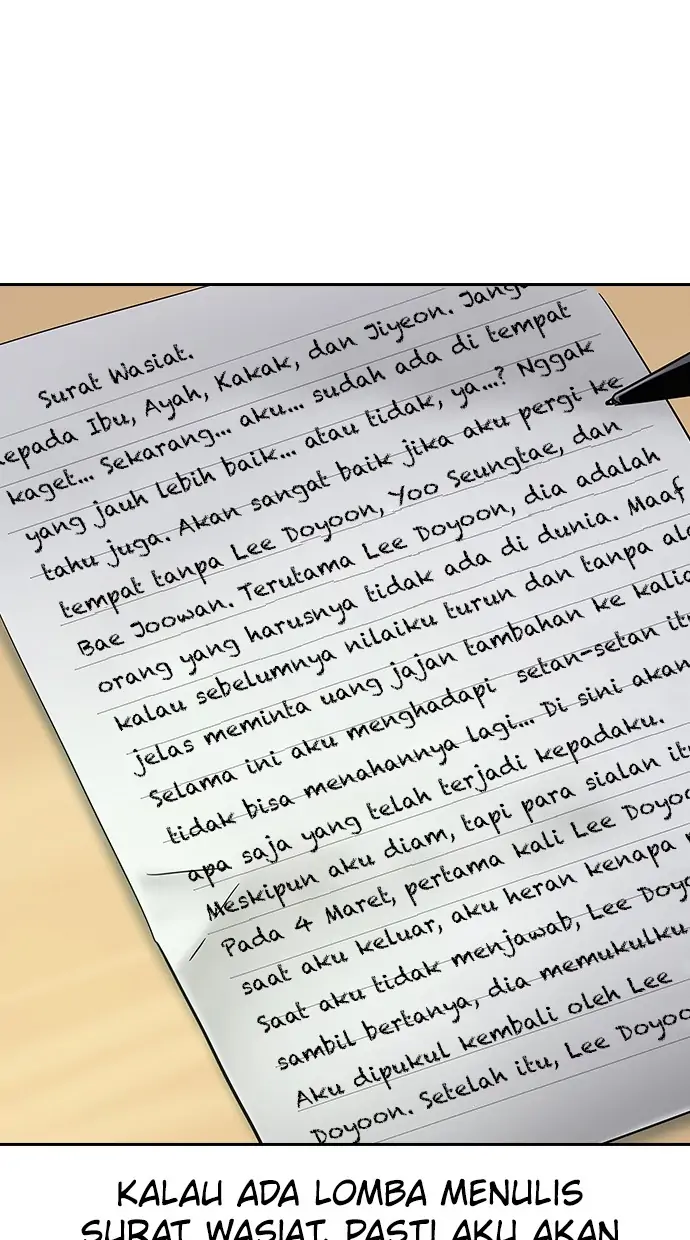 Surat Wasiat.
kepada Ibu, Ayah, Kakak, dan Jiyeon.
kaget... Sekarang... aku... sudah ada di tempat
yang jauh lebih baik... atau tidak, ya...? Nggak
tahu juga. Akan sangat baik jika aku pergi ke
tempat tanpa Lee Doyoon, Yoo Seungtae, dan
Bae Joowan. Terutama Lee Doyoon, dia adalah
orang yang harusnya tidak ada di dunia. Maaf
kalau sebelumnya nilaiku turun dan tanpa
jelas meminta uang jajan tambahan ke
Selama ini aku menghadapi setan-setan
tidak bisa menahannya lagi... Di sini akan
apa saja yang telah terjadi kepadaku.
Meskipun aku diam, tapi para sialan
Pada 4 Maret, pertama kali Lee
saat aku keluar, aku heran kenapa
Saat aku tidak menjawab, Lee
sambil bertanya, dia memukulku
Aku dipukul kembali oleh Lee
Doyoon. Setelah itu, Lee
KALAU ADA LOMBA MENULIS
SURAT WASIAT, PASTI AKU AKAN